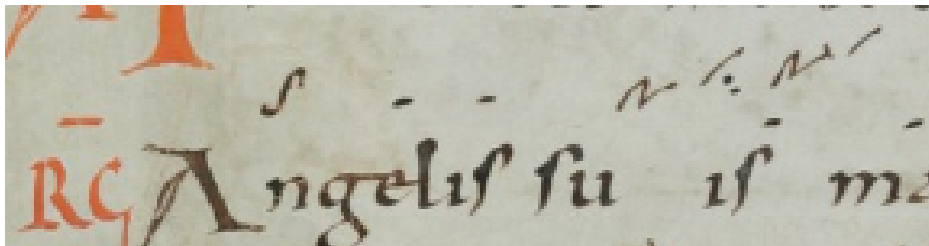 RG Angelis suis ma